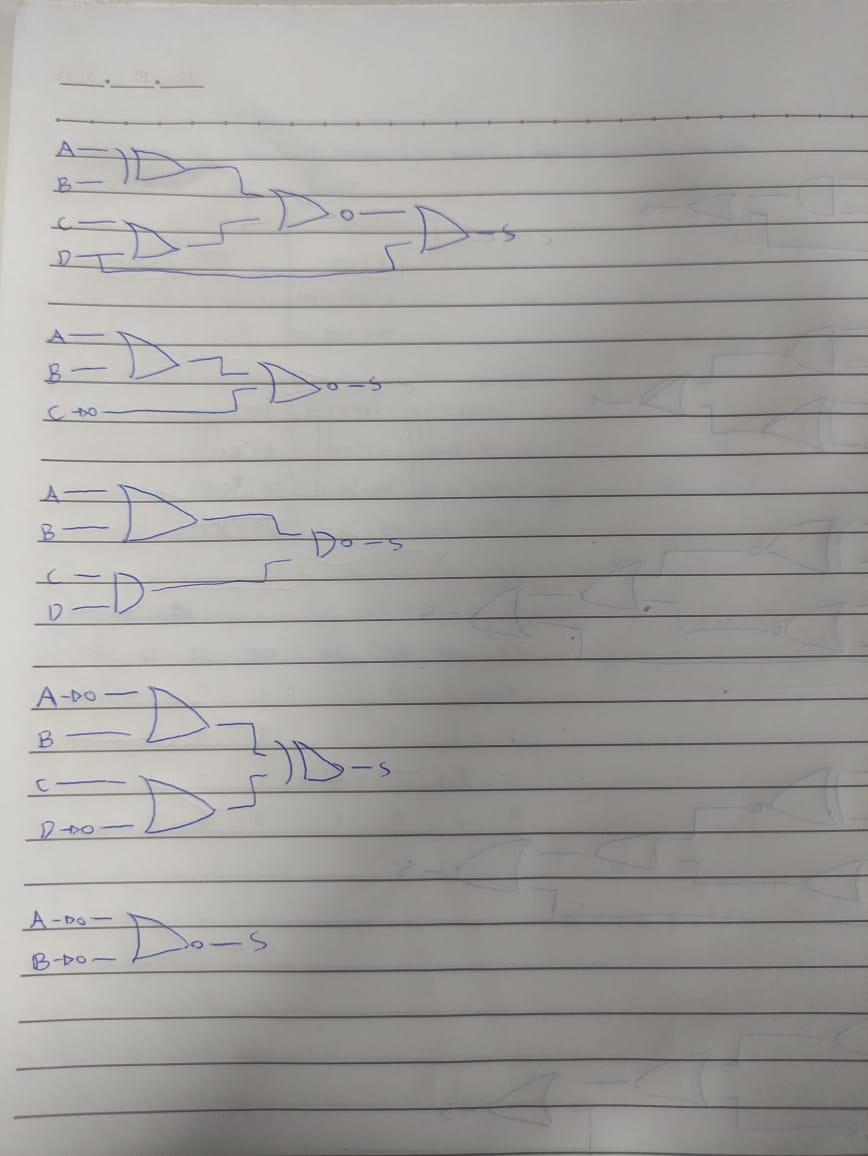 A
B
C
D
S
A
B
C
S
A
B
C
D
S
A
B
C
D
S
A
B
S